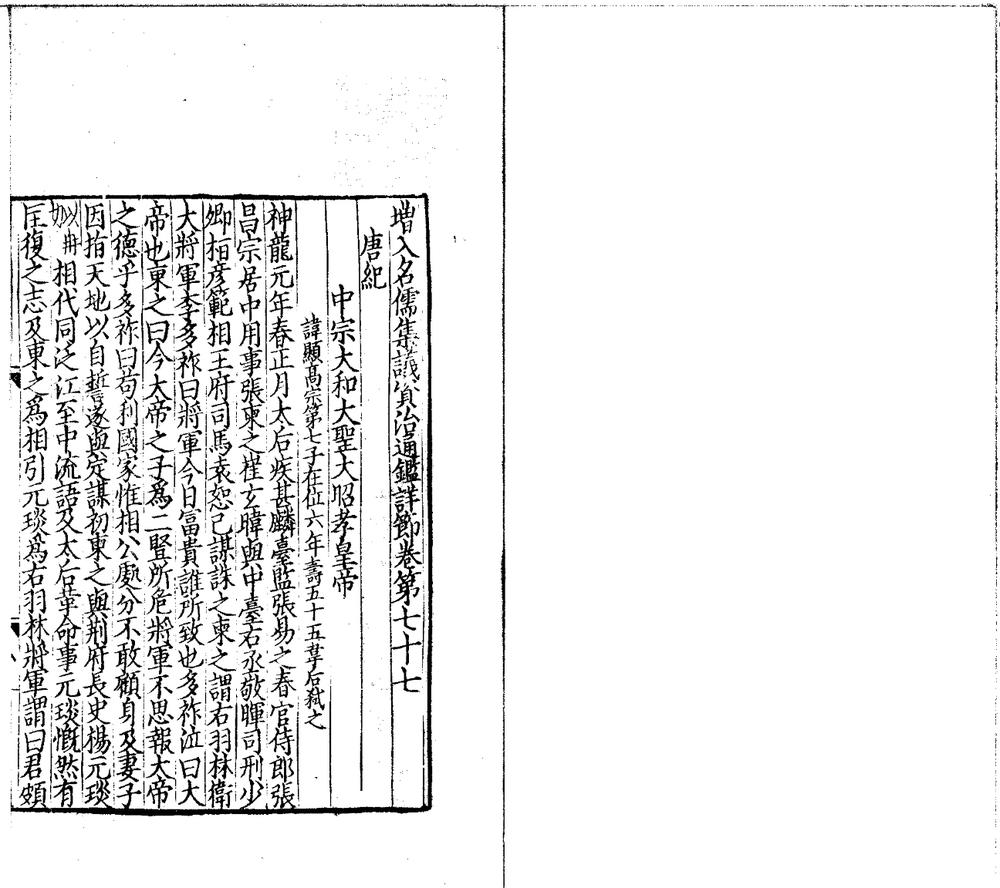 增入名儒集議資治通鑑詳節卷第七十七
唐紀
中宗大和大聖大昭孝皇帝
諱顯高宗第七子在位六年壽五十五韋后弑之
神龍元年春正月太后疾甚麟臺監張易之春官侍郎張
昌宗居中用事張柬之崔玄暐與中臺右丞敬暉司刑少
卿桓彥範相王府司馬袁恕己謀誅之柬之謂右羽林衛
大將軍李多祚曰將軍今日富貴誰所致也多祚泣曰大
帝也柬之曰今大帝之子爲二豎所危將軍不思報大帝
之德乎多祚曰苟利國家惟相公處分不敢顧身及妻子
因指天地以自誓遂與定謀初柬之與荆府長史楊元琰
相代同泛江至中流語及太后革命事元琰慨然有
匡復之志及柬之爲相引元琰爲右羽林將軍謂曰君頗